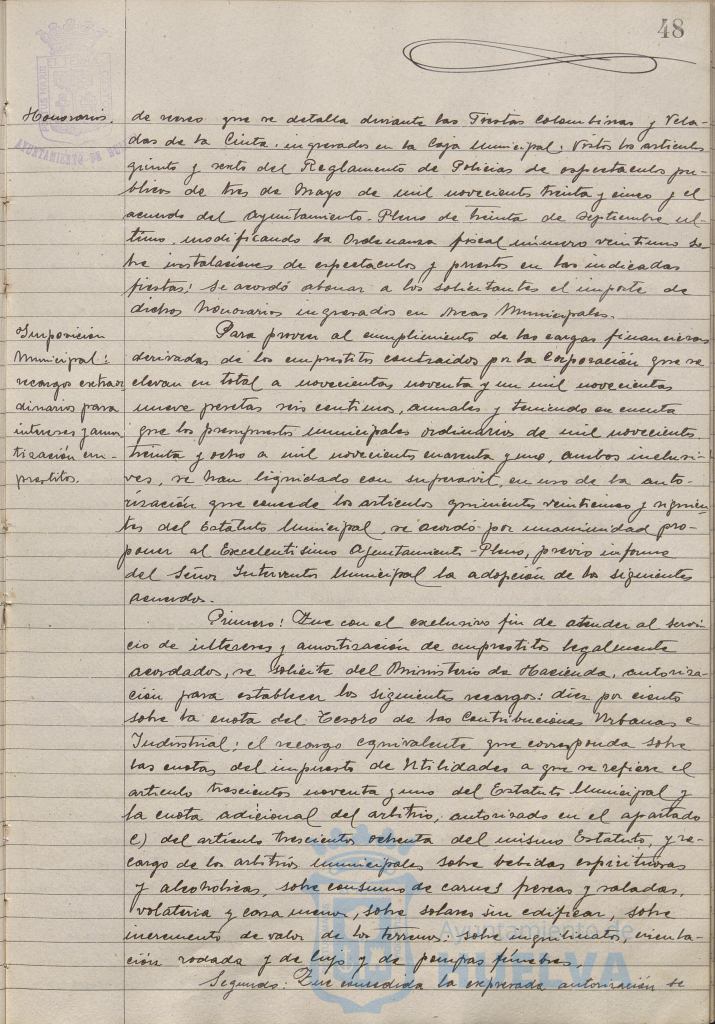 48
Honorarios.
de recreo que se detalla durante las Fiestas Colombinas y Vela-
das de la Cinta, ingresados en la Caja Municipal: Vistos los articulos
quinto y sexto del Reglamento de Policias de espectaculos pu-
blicos de tres de Mayo de mil novecientos treinta y cinco y el
acuerdo del Ayuntamiento-Pleno de treinta de Septiembre ul-
timo, modificando la Ordenanza fiscal número veintiuno so-
bre instalaciones de espectaculos y puestos en las indicadas
fiestas; se acordó abonar a los solicitantes el importe de
dichos honorarios ingresados en Arcas Municipales.
Imposición
Municipal:
recargos extraor
dinarios para
intereses y amor
tización em-
prestitos.
Para proveer al cumplimiento de las cargas financieras
derivadas de los emprestitos contraidos por la Corporación que se
elevan en total a novecientas noventa y un mil novecientas
nueve pesetas seis centimos, anuales y teniendo en cuenta
que los presupuestos municipales ordinarios de mil novecientos
treinta y ocho a mil novecientos cuarenta y uno, ambos inclusi-
ves, se han liquidado con superavit, en uso de la auto-
rización que concede los articulos quinientos veinticinco y siguien-
tes del Estatuto Municipal, se acordó por unanimidad pro-
poner al Excelentisimo Ayuntamiento-Pleno, previo informe
del Señor Interventor Municipal la adopción de los siguientes
acuerdos.
Primero: Que con el exclusivo fin de atender al servi-
cio de intereses y amortización de emprestitos legalmente
acordados, se solicite del Ministerio de Hacienda, autoriza-
ción para establecer los siguientes recargos: diez por ciento
sobre la cuota del Tesoro de las Contribuciones Urbanas e
Industrial; el recargo equivalente que corresponda sobre
las cuotas del impuesto de Utilidades a que se refiere el
articulo trescientos noventa y uno del Estatuto Municipal y
la cuota adicional del arbitrio, autorizado en el apartado
C) del artículo trescientos ochenta del mismo Estatuto, y re-
cargo de los arbitrios municipales sobre bebidas espirituosas
y alcoholicas, sobre consumo de carnes frescas y saladas,
volateria y caza menor, sobre solares sin edificar, sobre
incremento de valor de los terrenos; sobre inquilinatos, circula-
ción rodada y de lujo y de pompas fúnebres.
Segundo: Que concedida la expresada autorización se
AYUNTAMIENTO DE
Ayuntamiento de
HUELVA